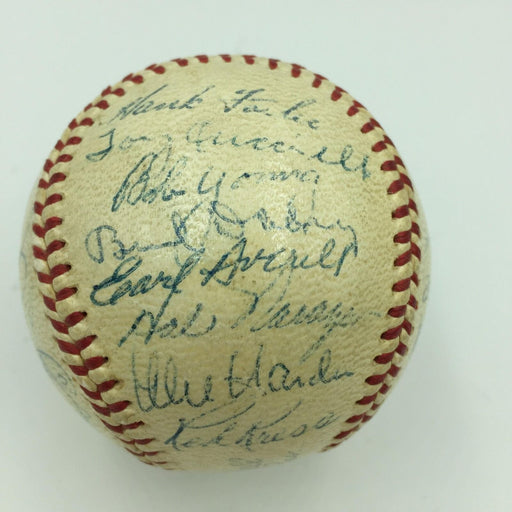 Hank Foiles
Tony Cuccinello
Bob Young
Bud Daley
Earl Averill
Hal Naragon
Mel Harder
Red Kress